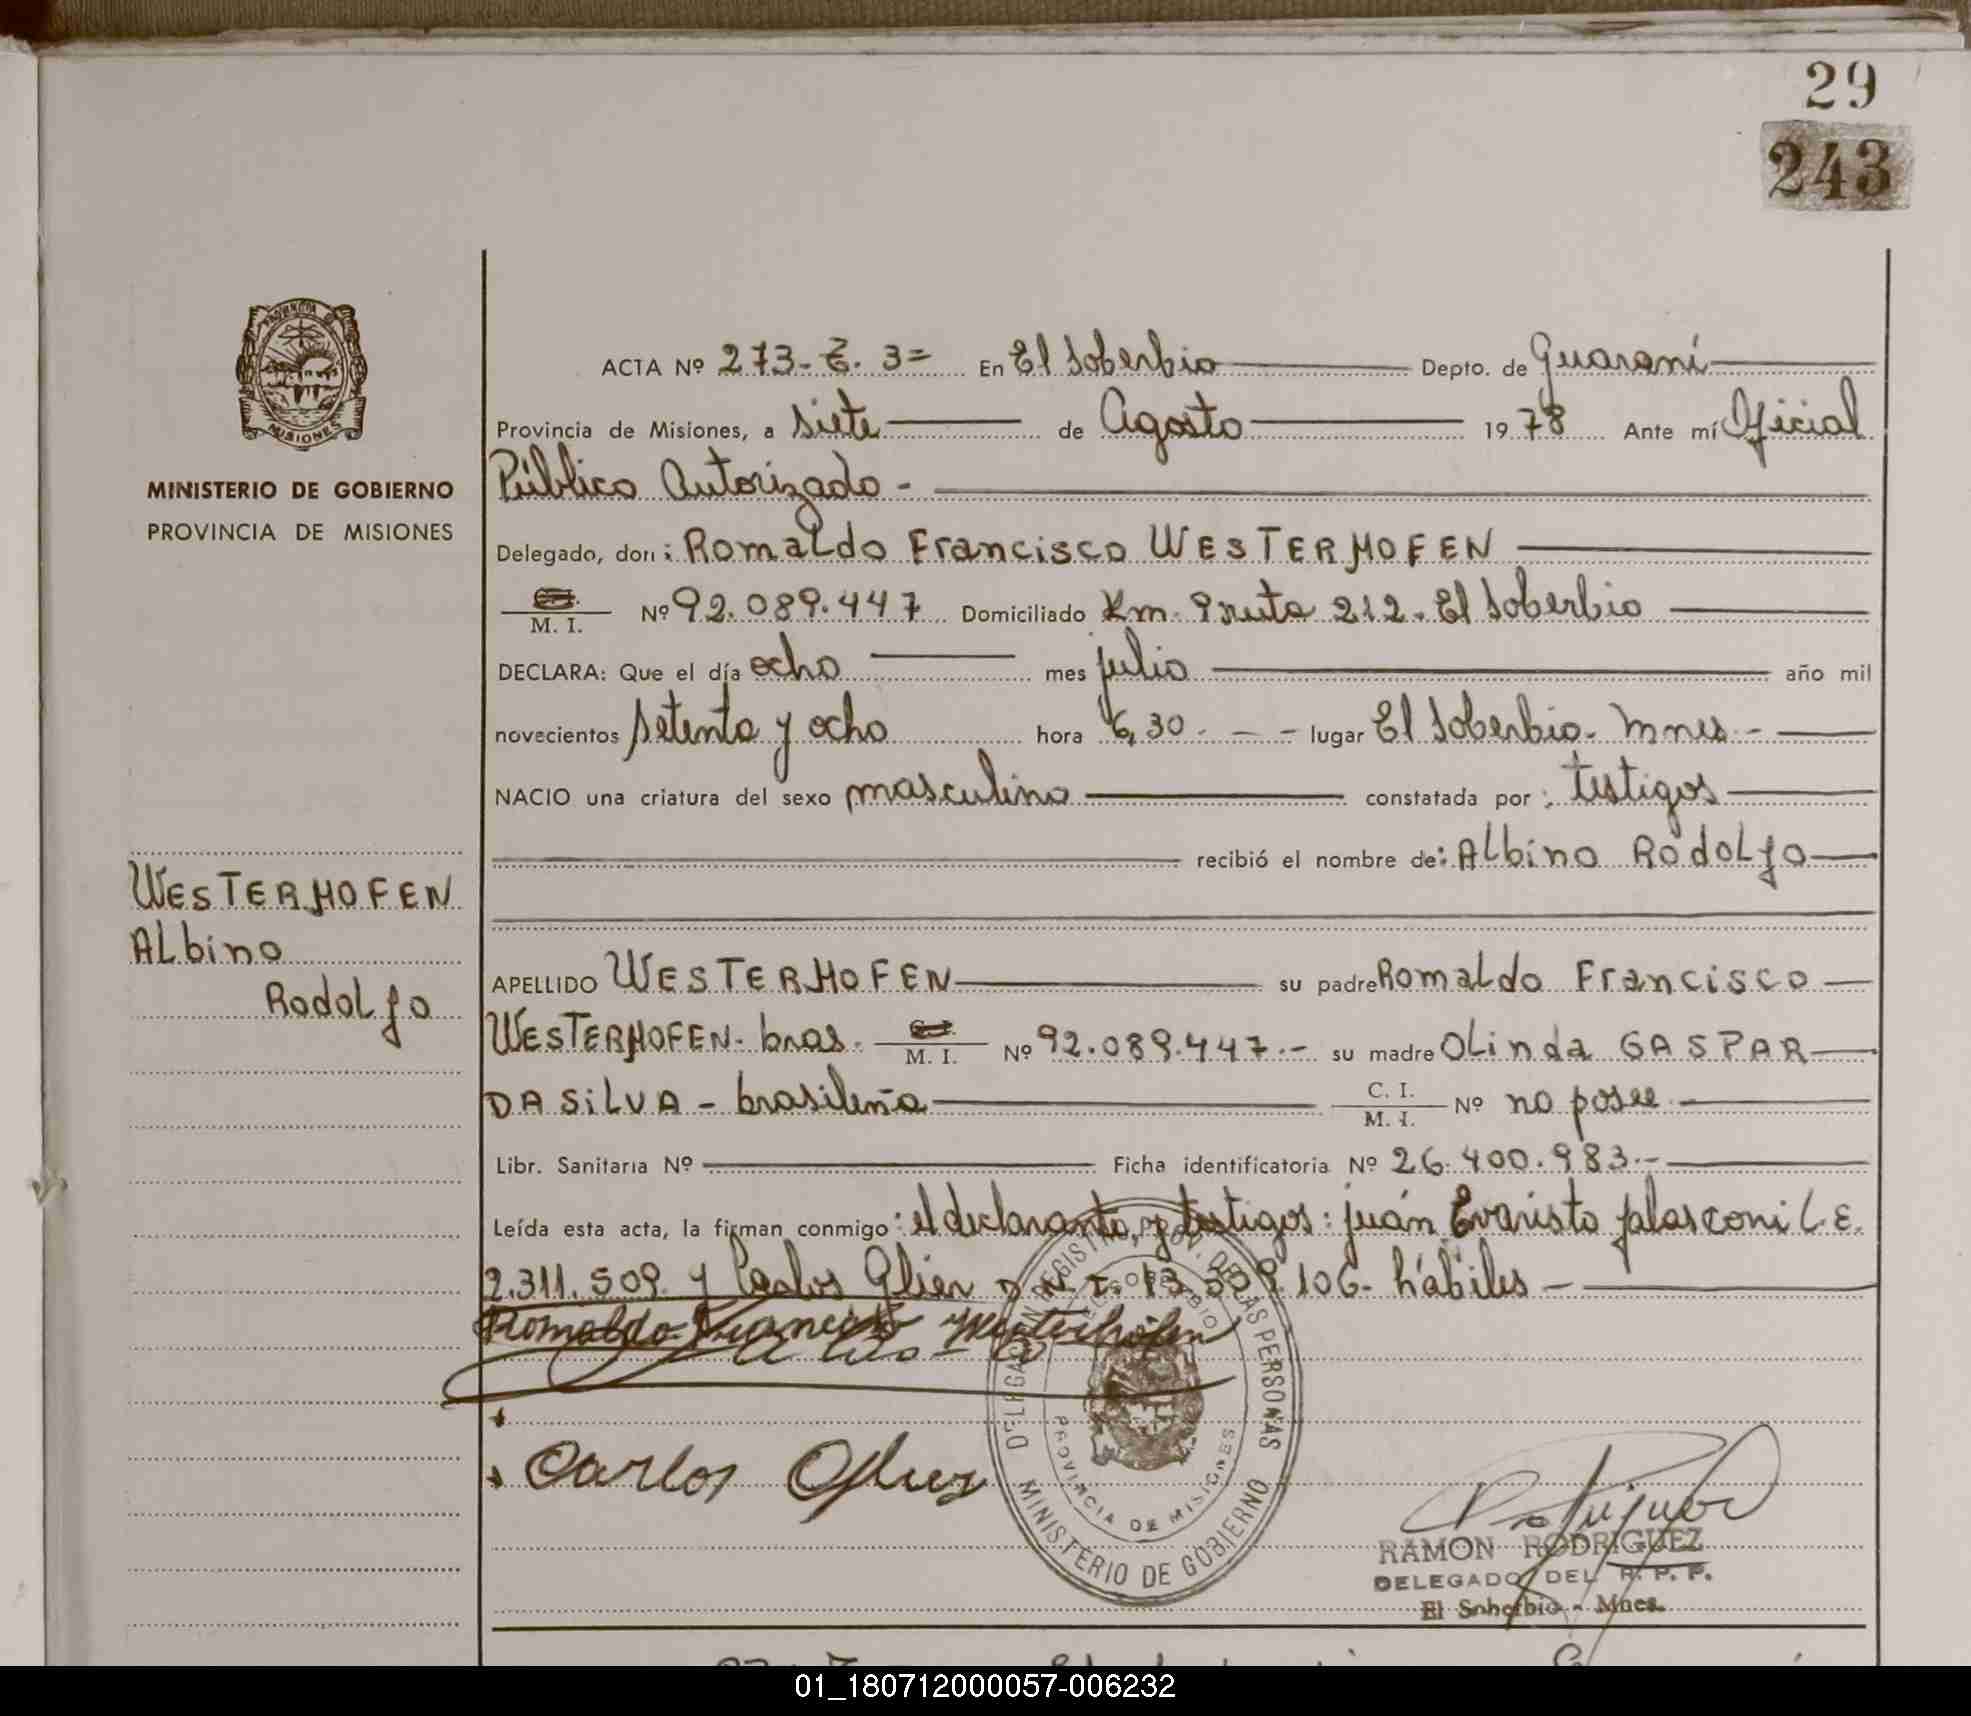 29
243
PROVINCIA DE
MISIONES
MINISTERIO DE GOBIERNO
PROVINCIA DE MISIONES
WESTERHOFEN
ALbino
RodoLfo
ACTA Nº 273- T. 3= En El Soberbio Depto. de Guaraní
Provincia de Misiones, a siete de Agosto 1978 Ante mí Oficial
Público Autorizado -
Delegado, don: RomaLdo Francisco WESTERHOFEN
M. I. Nº 92.089.447 Domiciliado Km. 9 ruta 212. El Soberbio
DECLARA: Que el día ocho mes julio año mil
novecientos setenta y ocho hora 6,30. - - lugar El Soberbio. Mnes.-
NACIO una criatura del sexo masculino constatada por: testigos
recibió el nombre de: ALbino RodoLfo
APELLIDO WESTERHOFEN su padre RomaLdo Francisco
WESTERHOFEN. bras. M. I. Nº 92.089.447.- su madre OLinda GASPAR
DA SiLVA - brasileña C. I. M. I. Nº no posee
Libr. Sanitaria Nº Ficha identificatoria Nº 26.400.983.-
Leída esta acta, la firman conmigo: el declarante, y testigos: juán Evaristo L.E.
2.311.509 y Carlos D.N.I. 13.559.106- hábiles -
Romaldo Francisco Westerhofen
Carlos
DELEGACION REGISTRO PROV. DE LAS PERSONAS
EL SOBERBIO
PROVINCIA DE MISIONES
MINISTERIO DE GOBIERNO
RAMON RODRIGUEZ
DELEGADO DEL R. P. P.
El Soberbio - Mnes.
01_180712000057-006232